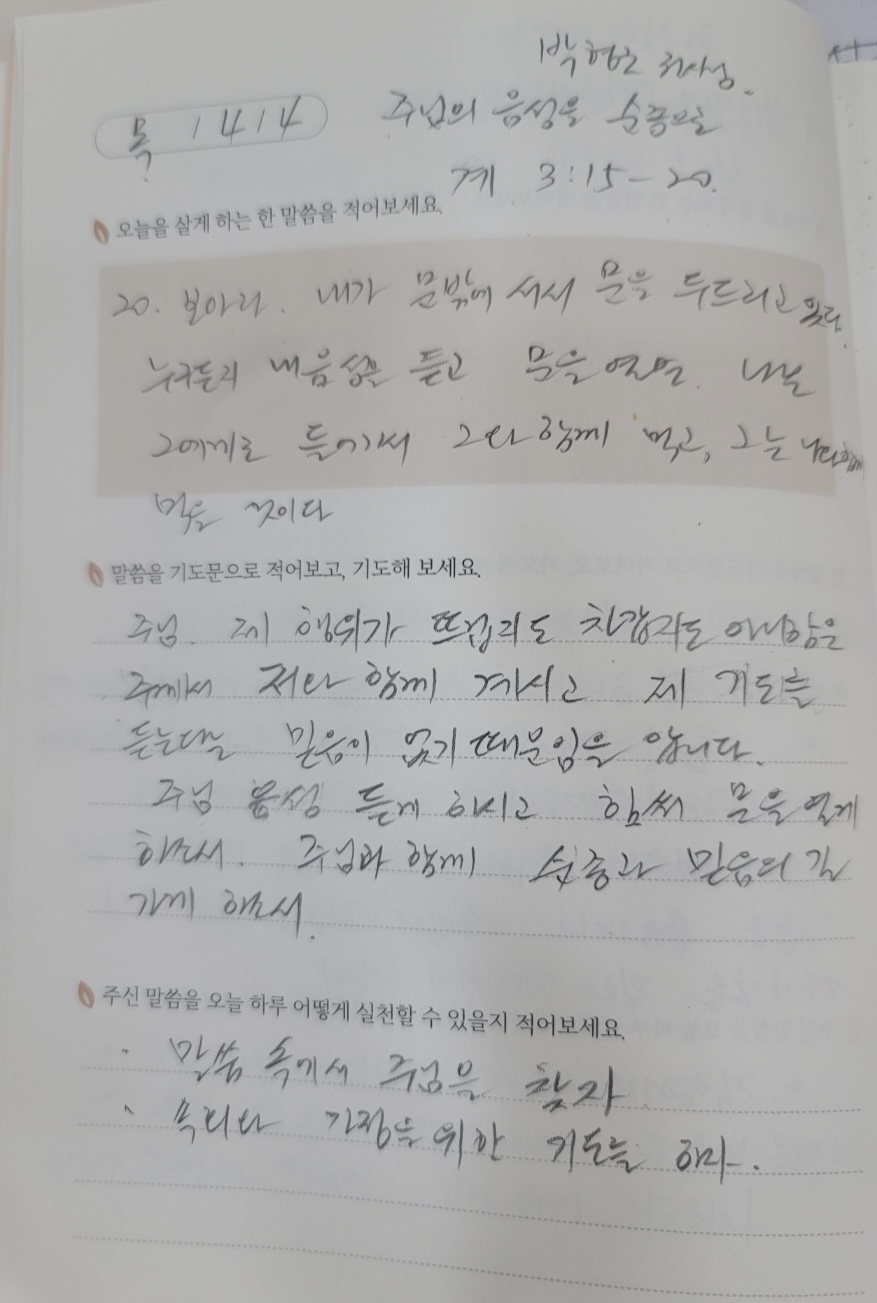 박형근 권사님.
목 1414 주님의 음성을 순종으로
계 3:15-20.
오늘을 살게 하는 한 말씀을 적어보세요.
20. 보아라. 내가 문밖에 서서 문을 두드리고 있다.
누구든지 내음성을 듣고 문을 열면. 나는
그에게로 들어가서 그와 함께 먹고, 그는 나와함께
먹을 것이다
말씀을 기도문으로 적어보고, 기도해 보세요.
주님. 제 행위가 뜨겁지도 차갑지도 아니함은
주께서 저와 함께 계시고 제 기도를
듣는다는 믿음이 없기 때문임을 압니다.
주님 음성 듣게 하시고 힘써 문을 열게
하소서. 주님과 함께 순종과 믿음의 길
가게 하소서.
주신 말씀을 오늘 하루 어떻게 실천할 수 있을지 적어보세요.
· 말씀 속에서 주님을 찾자
· 가정을 위한 기도를 하자.